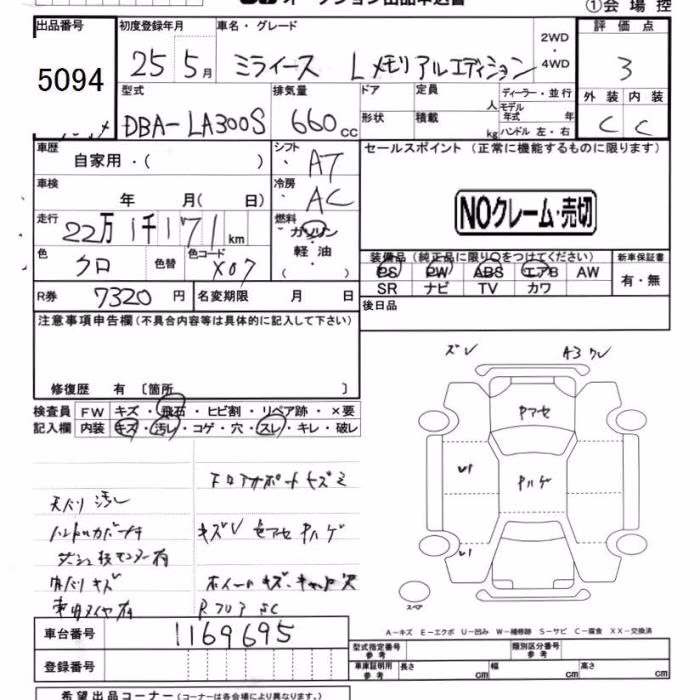 オークション出品申込書
①会場控
出品番号
5094
初度登録年月
25 5月
車名・グレード
ミライース Lメモリアルエディション
2WD
・
4WD
評価点
3
型式
DBA-LA300S
排気量
660cc
ドア
定員
人
形状
積載
kg
ディーラー・並行
モデル年式
年
ハンドル 左・右
外装 内装
C C
車歴
自家用・( )
シフト
AT
車検
年 月( 日)
冷房
AC
走行
22万1千171km
燃料
ガソリン
軽油
( )
色
クロ
色替
色コード
X07
R券 7320円
名変期限 月 日
セールスポイント(正常に機能するものに限ります)
NOクレーム・売切
装備品(純正品に限り○をつけてください)
PS PW ABS エアB AW
SR ナビ TV カワ
新車保証書
有・無
後日品
注意事項申告欄(不具合内容等は具体的に記入して下さい)
修復歴 有〔箇所 〕
検査員記入欄
FW キズ・飛石・ヒビ割・リペア跡・×要
内装 キズ・汚レ・コゲ・穴・スレ・キレ・破レ
天バリ汚レ
内バリキズ
キズV セアセ Pハゲ
ズレ
A3 ワレ
Pアセ
Pハゲ
U1
U1
スペア
A−キズ E−エクボ U−凹み W−補修跡 S−サビ C−腐食 XX−交換済
車台番号
1169695
登録番号
型式指定番号
参考
類別区分番号
参考
車庫証明用
参考
長さ cm
幅 cm
高さ cm
希望出品コーナー(コーナーは各会場により異なります。)